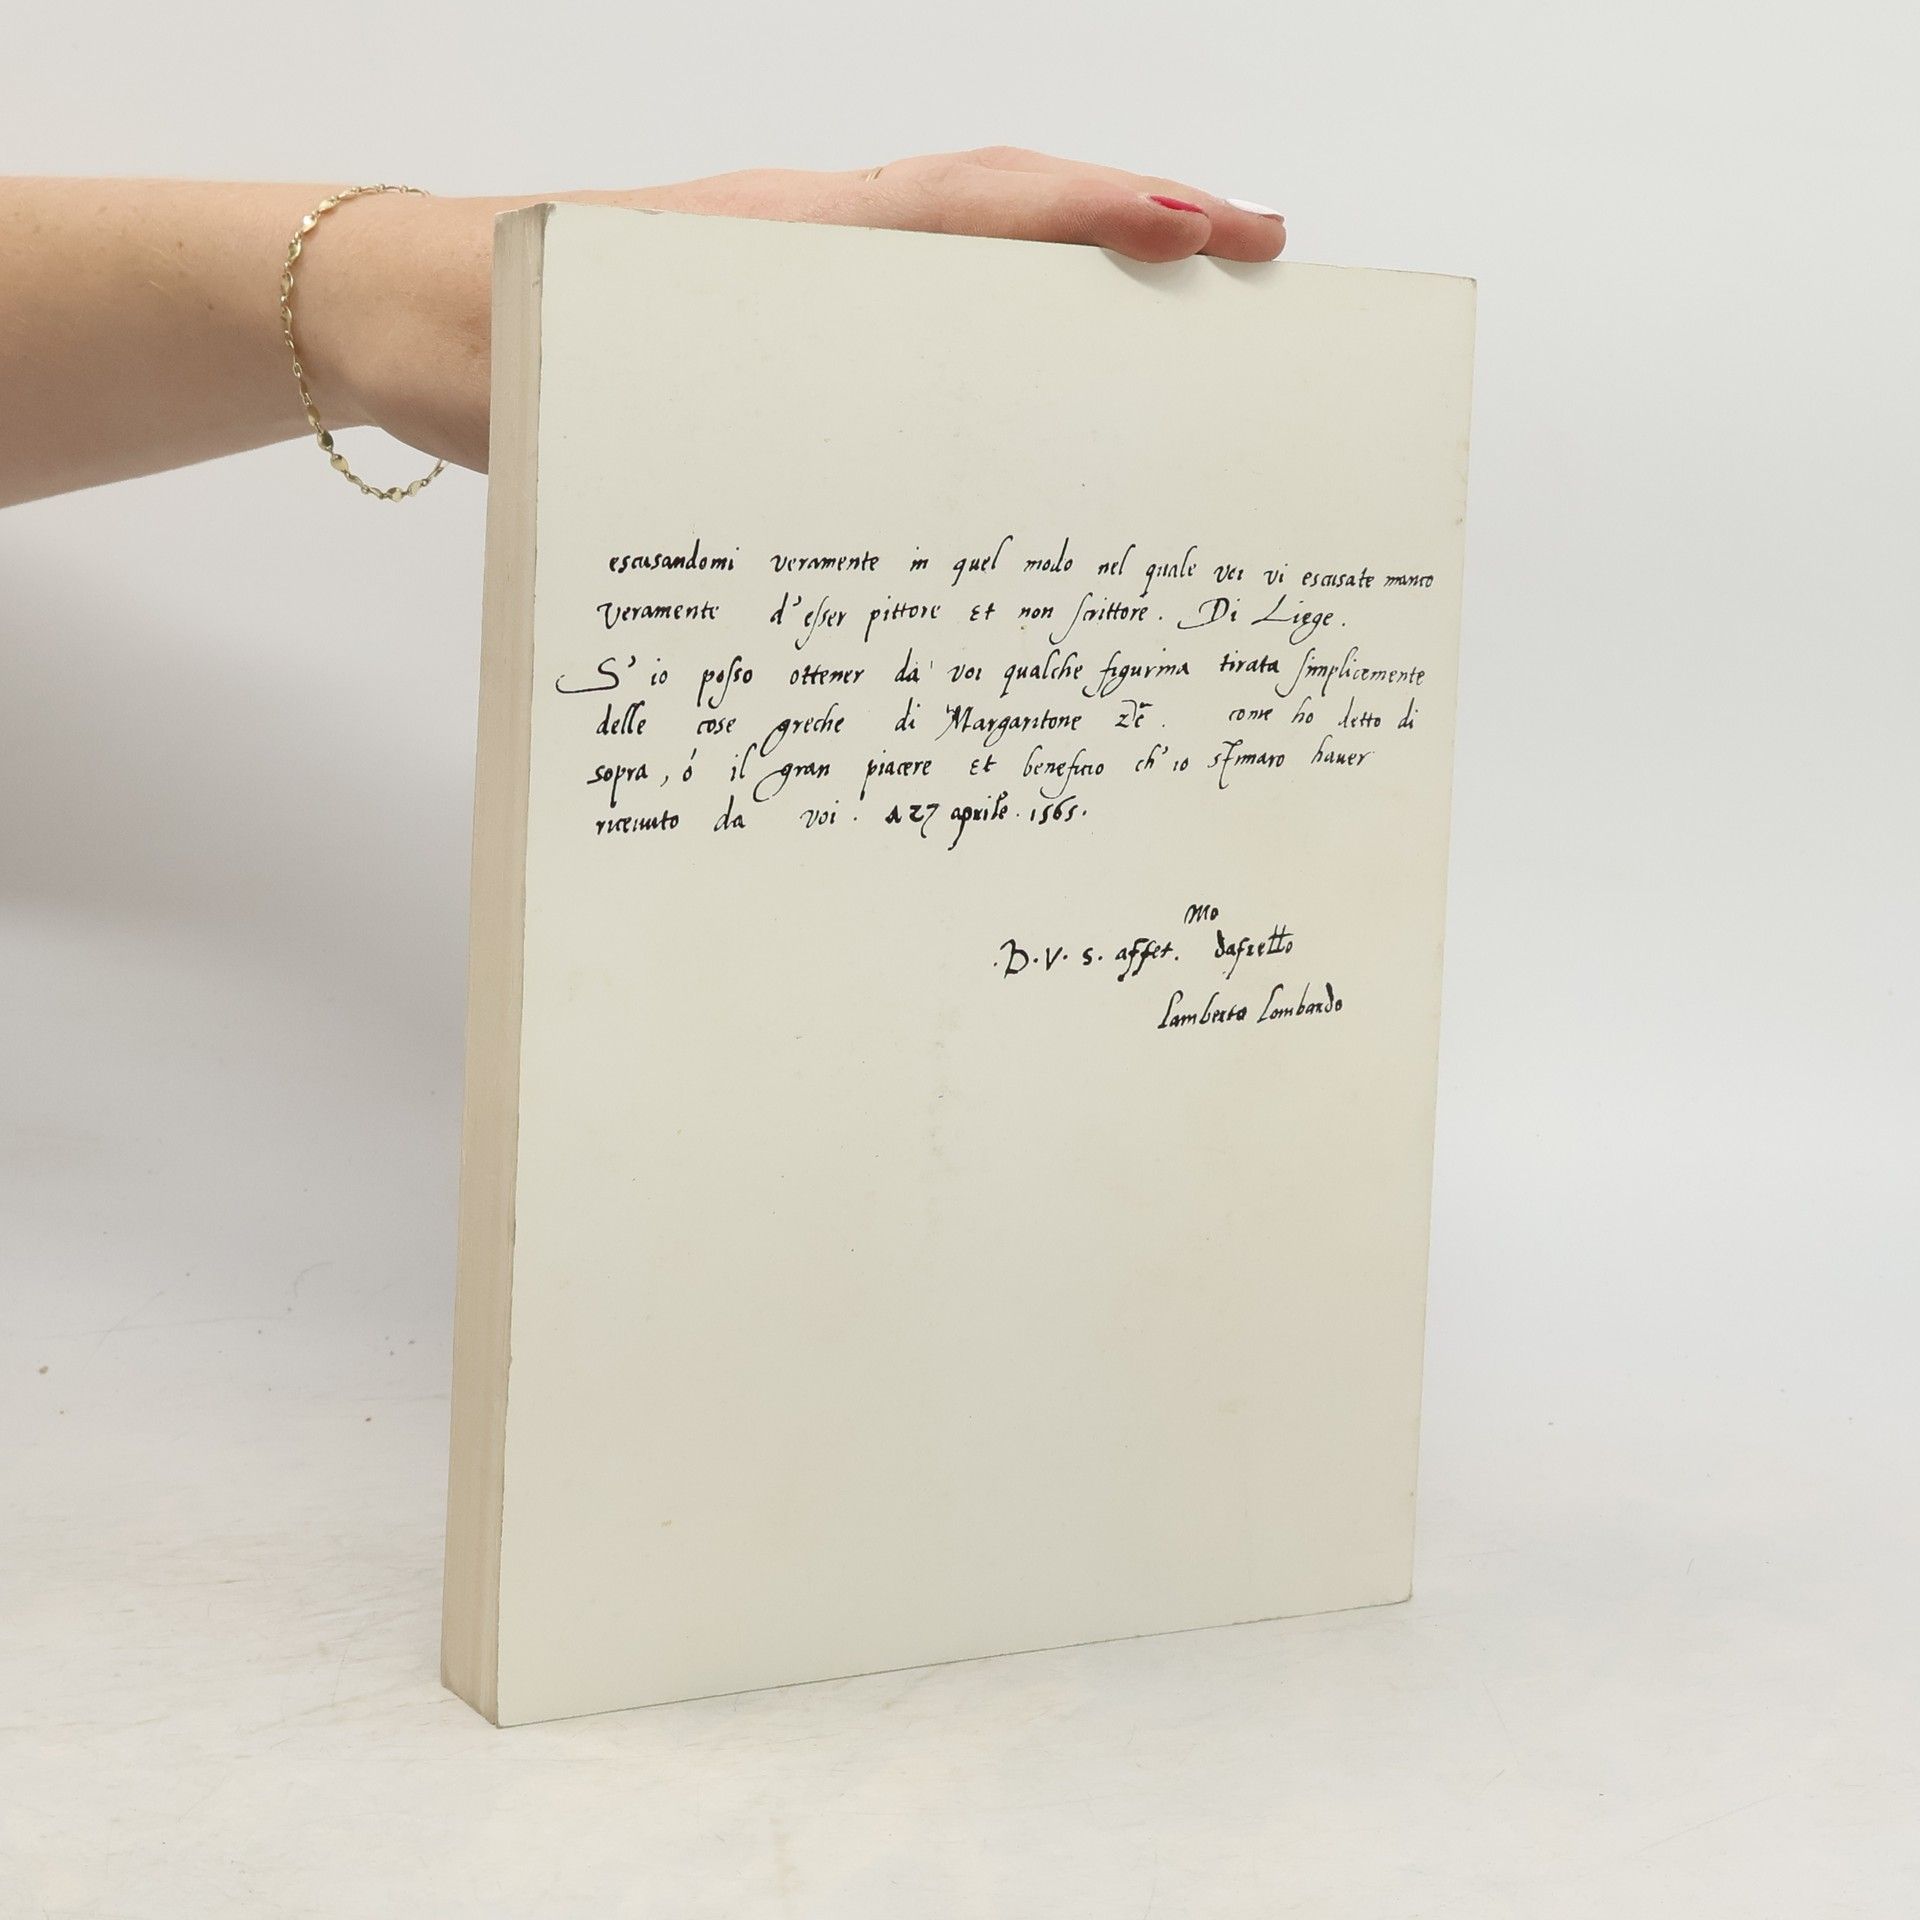 escusandomi veramente in quel modo nel quale voi vi escusate manco
veramente d'esser pittore et non scrittore. Di Liege.
S' io posso ottener da voi qualche figurina tirata simplicemente
delle cose greche di Margaritone come ho detto di
sopra, ó il gran piacere et beneficio ch' io hauer
riceuuto da voi. A 27 aprile. 1565.
mo
.D.V.S. affet.
Lamberto Lombardo